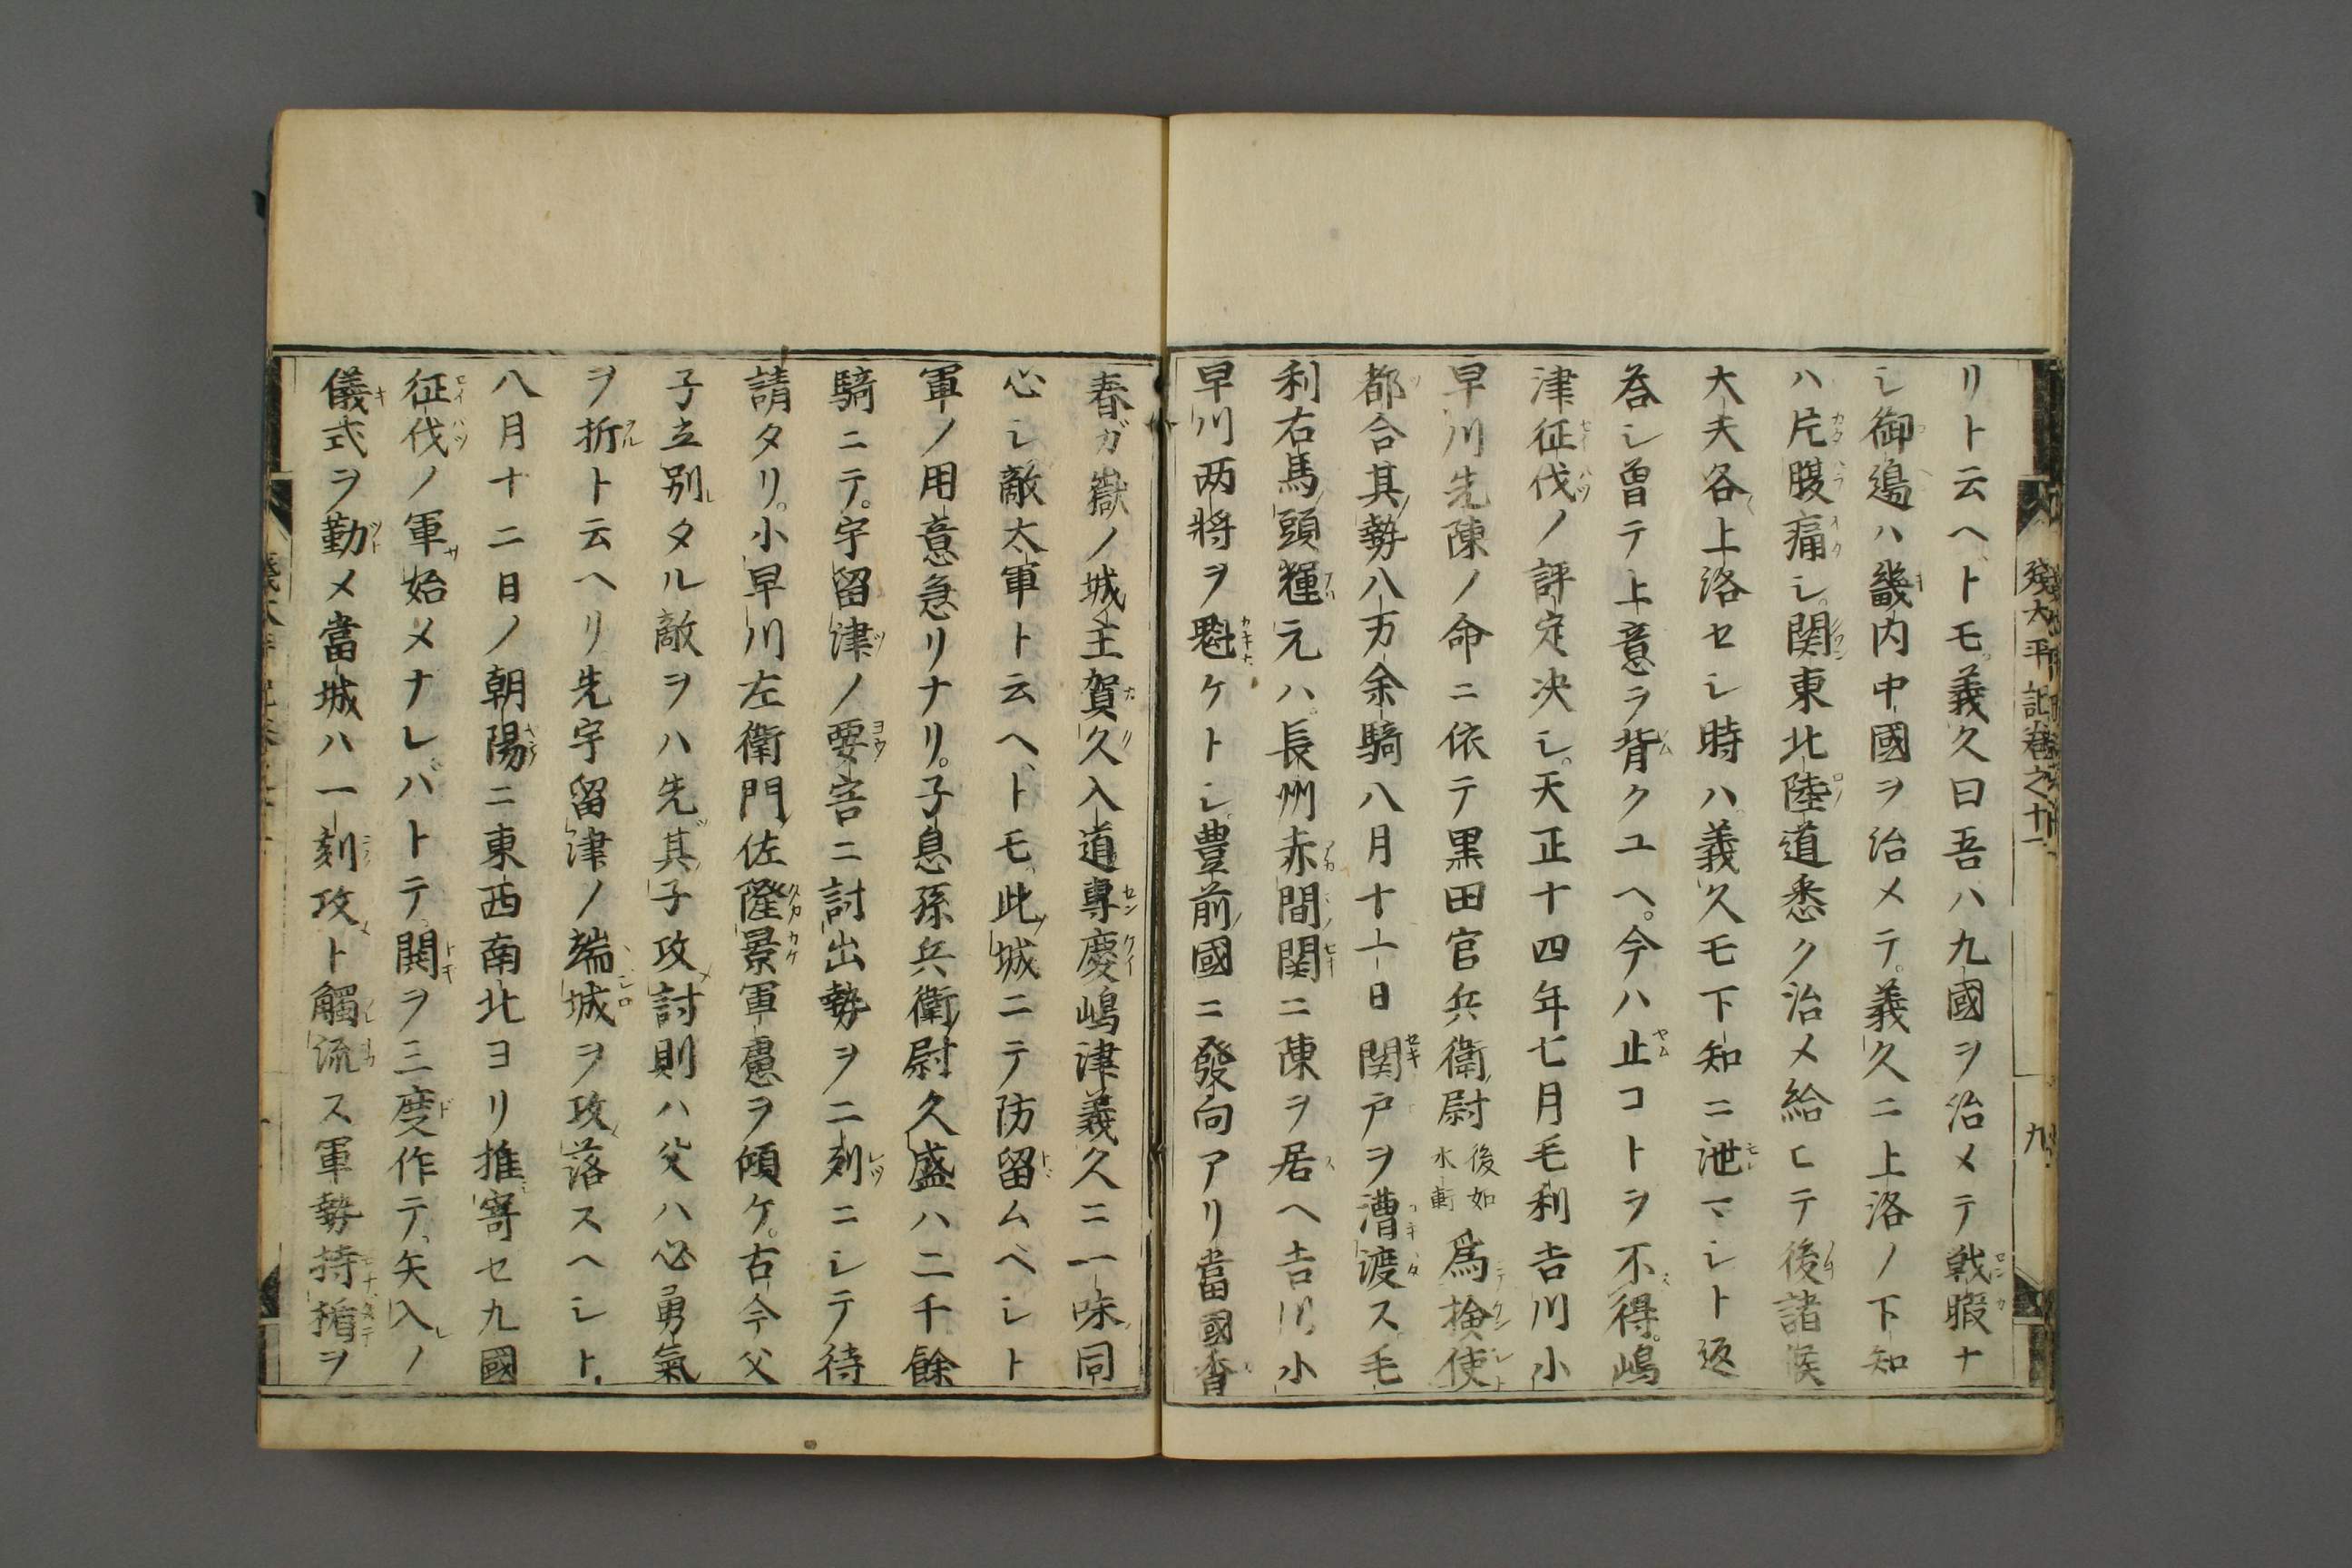 残太平記巻之十一
九
リト云ヘトモ義久曰吾ハ九國ヲ治メテ戦暇ナ
シ御邉ハ畿内中國ヲ治メテ義久ニ上洛ノ下知
ハ片腹痛シ関東北陸道悉ク治メ給ヒテ後諸侯
大夫各上洛セシ時ハ義久モ下知ニ泄マシト返
荅シ曽テ上意ヲ背クユヘ今ハ止コトヲ不得嶋
津征伐ノ評定决シ天正十四年七月毛利吉川小
早川先陳ノ命ニ依テ黒田官兵衛尉後如水軒爲捡使
都合其勢八万余騎八月十一日関戸ヲ漕渡ス毛
利右馬頭輝元ハ長州赤間関ニ陳ヲ居ヘ吉川小
早川两将ヲ魁ケトシ豊前國ニ發向アリ當國香
春ガ嶽ノ城主賀久入道專慶嶋津義久ニ一味同
心シ敵大軍ト云ヘトモ此城ニテ防留ムベシト
軍ノ用意急リナリ子息孫兵衛尉久盛ハ二千餘
騎ニテ宇留津ノ要害ニ討出勢ヲ二列ニシテ待
請タリ小早川左衛門佐隆景軍慮ヲ傾ケ古今父
子立別タル敵ヲハ先其子攻討則ハ父ハ必勇氣
ヲ折ト云ヘリ先宇留津ノ端城ヲ攻落スヘシト
八月十二日ノ朝陽ニ東西南北ヨリ推寄セ九國
征伐ノ軍始メナレバトテ鬨ヲ三度作テ矢入ノ
儀式ヲ勤メ當城ハ一刻攻ト觸流ス軍勢持楯ヲ